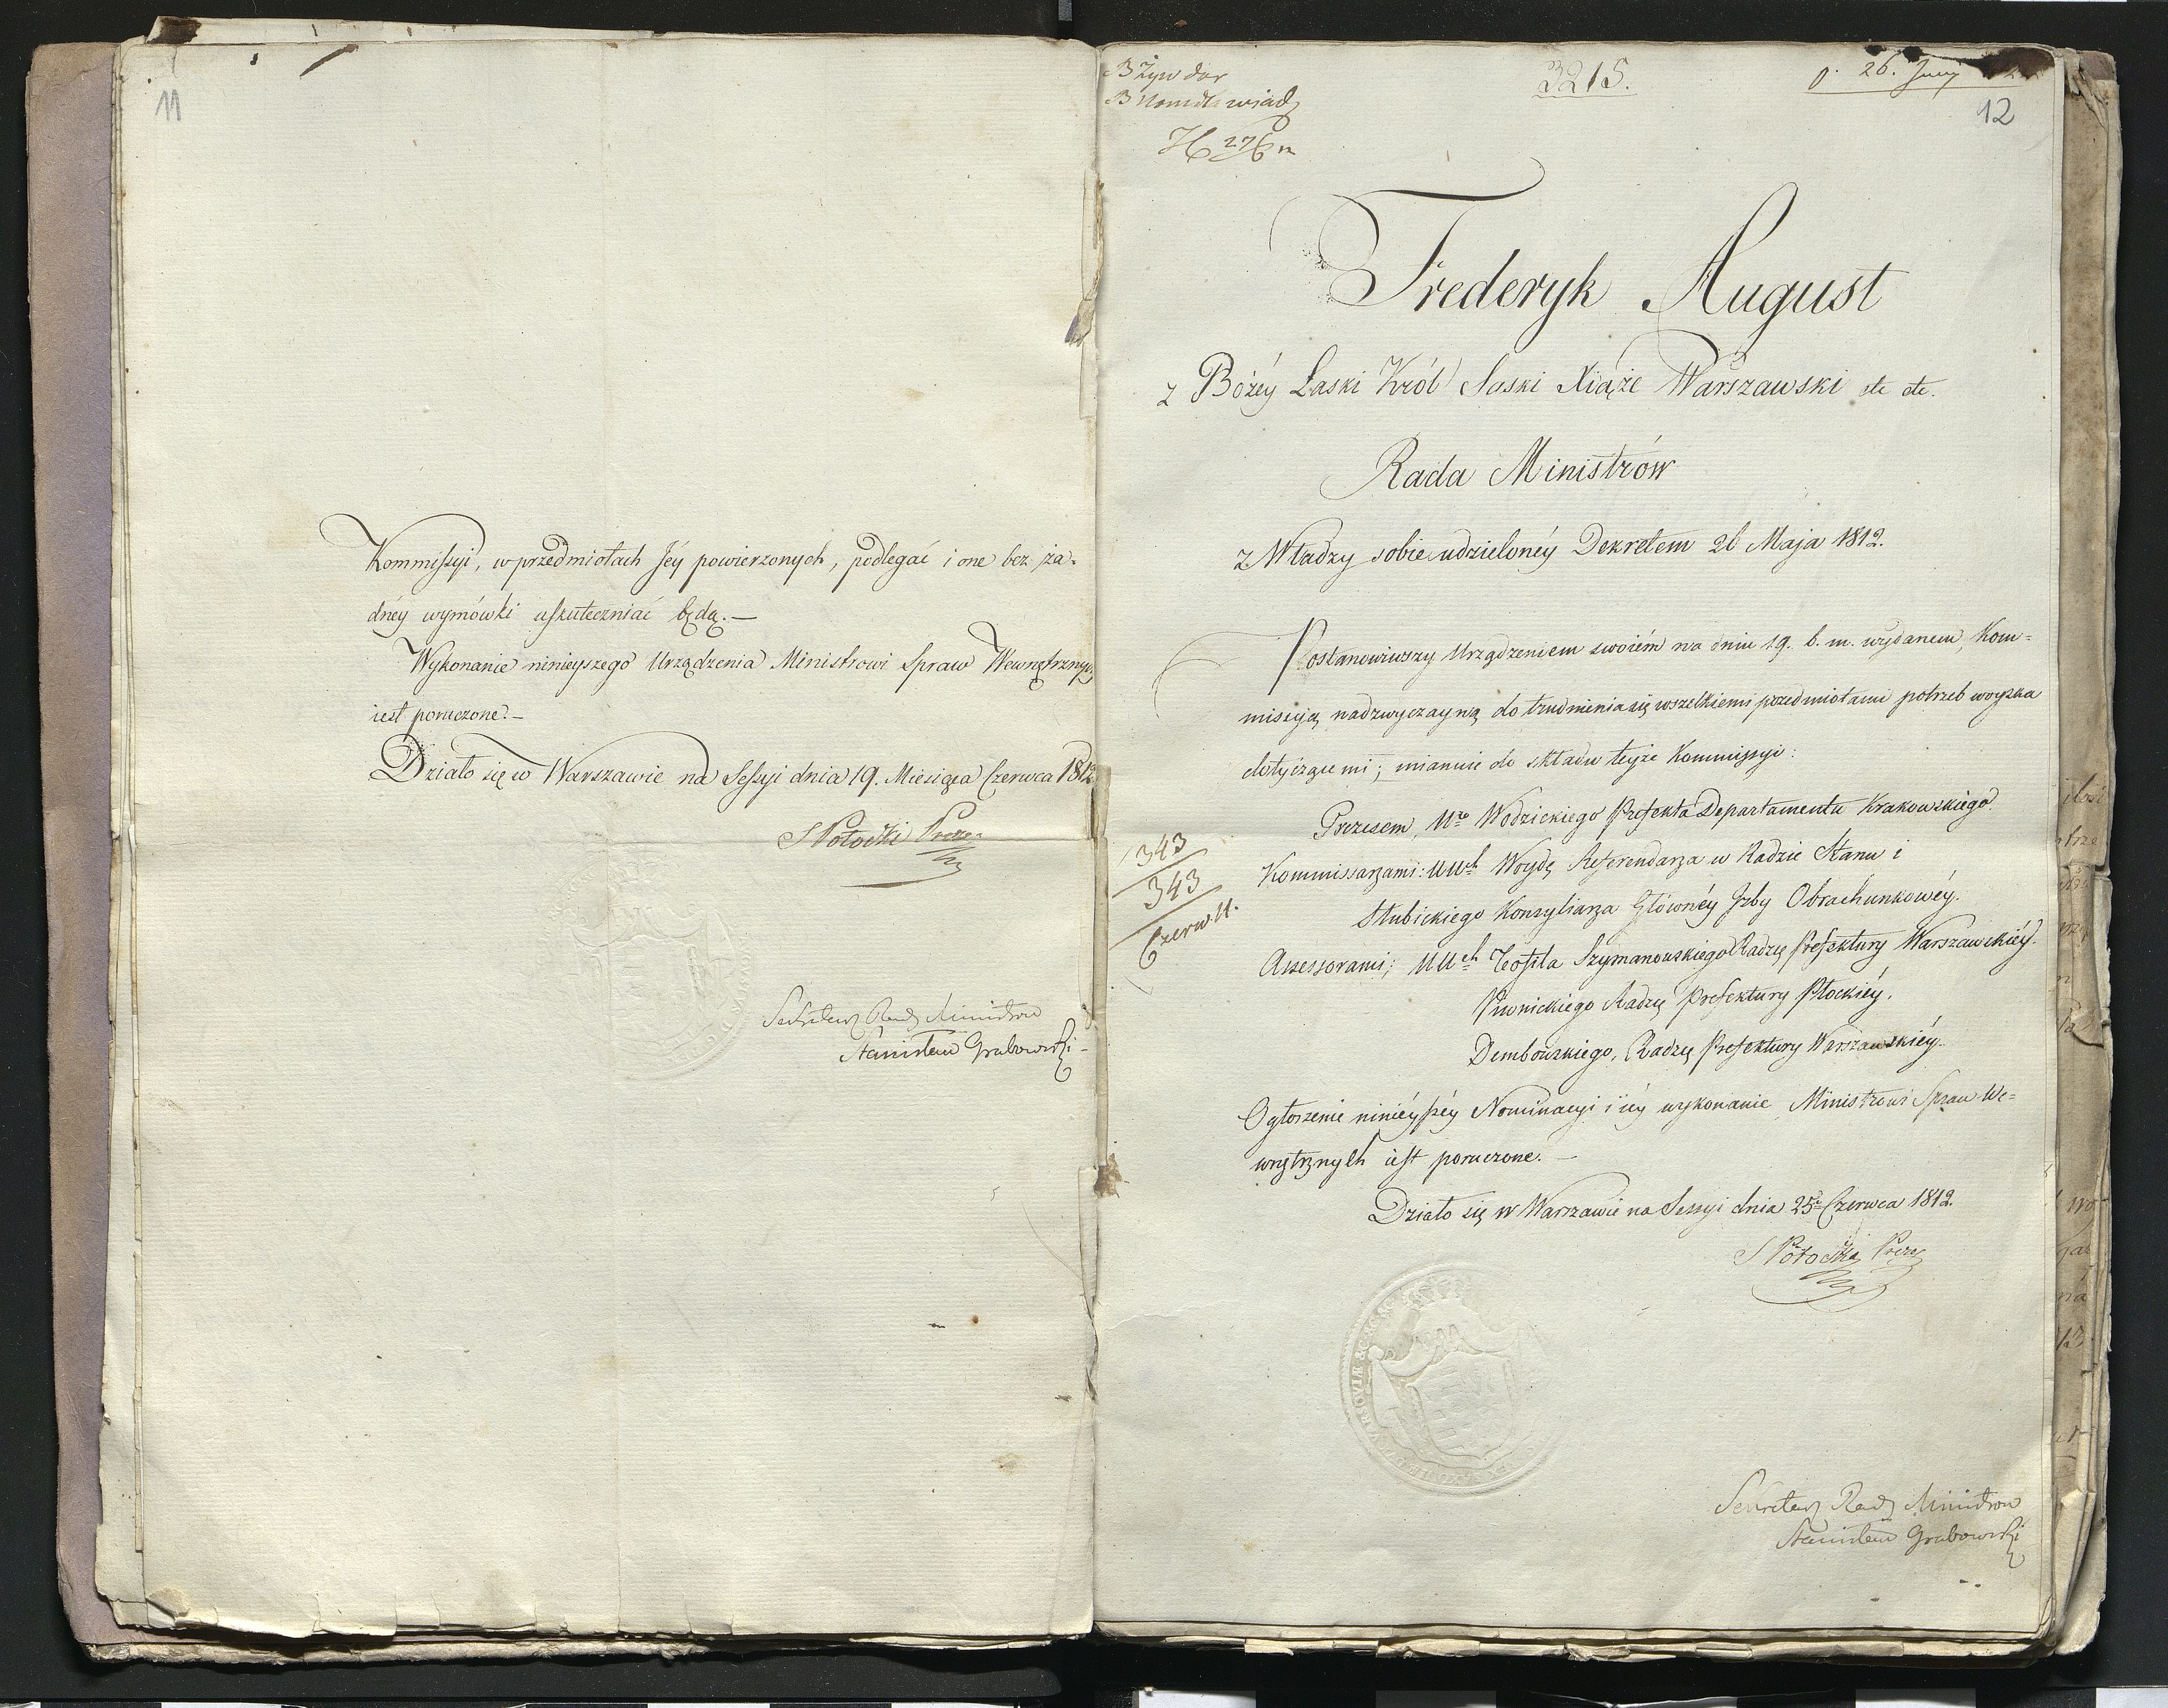 11
Kommissyi, w przedmiotach Jéy powierzonych, podlegać i one bez ża-
dnéy wymówki uskuteczniać będą.—
Wykonanie ninieyszego Urządzenia Ministrowi Spraw Wewnętrznych,
iest poruczone.—
Działo się w Warszawie na Sessyi dnia 19. Miesiąca Czerwca 1812
S Potocki Prezes
Sekretarz Rady Ministrow
Stanisław Grabowski
3215.
26. Juny
12
Frederyk August
z Bożéy Łaski Król Saski Xiąże Warszawski etc etc.
Rada Ministrów
z Władzy sobie udzielonéy Dekretem 26 Maja 1812.
Postanowiwszy Urządzeniem swoiém na dniu 19. b. m. wydanem, Kom=
missyią nadzwyczayną do trudnienia się wszelkiemi przedmiotami potrzeb woyska
dotyiączemi; mianuie do składu teyże Kommissyi:
Prezesem, Ur. Wodzickiego Prefekta Departamentu Krakowskiego
Kommissarzami: UUch Woydę Referendarza w Radzie Stanu i
Słubickiego Konsyliarza Głównéy Izby Obrachunkowéy.
Assessorami; UUch Teofila Szymanowskiego Radzcę Prefektury Warszawskiéy.
Piwnickiego Radzcę Prefektury Płockiéy,
Dembowskiego, Radzcę Prefektury Warszawskiéy.
343
343
Czerw. 11.
Ogłoszenie niniéyszéy Nominacyi i iéy wykonanie Ministrowi Spraw We=
wnętrznych iest poruczone.—
Działo się w Warszawie na Sessyi dnia 25 Czerwca 1812.
S Potocki Prezes
Sekretarz Rady Ministrow
Stanisław Grabowski